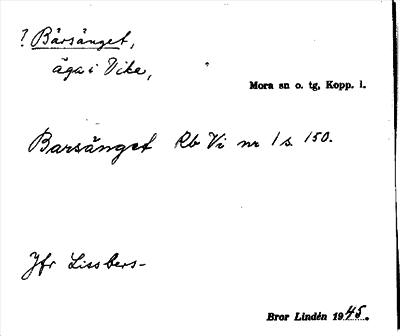 ? Bårsänget,
äga i Vika,
Mora sn o. tg, Kopp. l.
Barsänget Rb Vi nr 1 s. 150.
Jfr Lissbers-
Bror Lindén 1945.